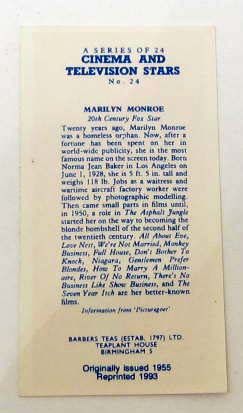 A SERIES OF 24
CINEMA AND
TELEVISION STARS
No. 24
MARILYN MONROE
20th Century Fox Star
Twenty years ago, Marilyn Monroe
was a homeless orphan. Now, after a
fortune has been spent on her in
world-wide publicity, she is the most
famous name on the screen today. Born
Norma Jean Baker in Los Angeles on
June 1, 1928, she is 5 ft. 5 in. tall and
weighs 118 lb. Jobs as a waitress and
wartime aircraft factory worker were
followed by photographic modelling.
Then came small parts in films until,
in 1950, a role in The Asphalt Jungle
started her on the way to becoming the
blonde bombshell of the second half of
the twentieth century. All About Eve,
Love Nest, We're Not Married, Monkey
Business, Full House, Don't Bother To
Knock, Niagara, Gentlemen Prefer
Blondes, How To Marry A Million-
aire, River Of No Return, There's No
Business Like Show Business, and The
Seven Year Itch are her better-known
films.
Information from 'Picturegoer'
BARBERS TEAS (ESTAB. 1797) LTD.
TEAPLANT HOUSE
BIRMINGHAM 5
Originally issued 1955
Reprinted 1993